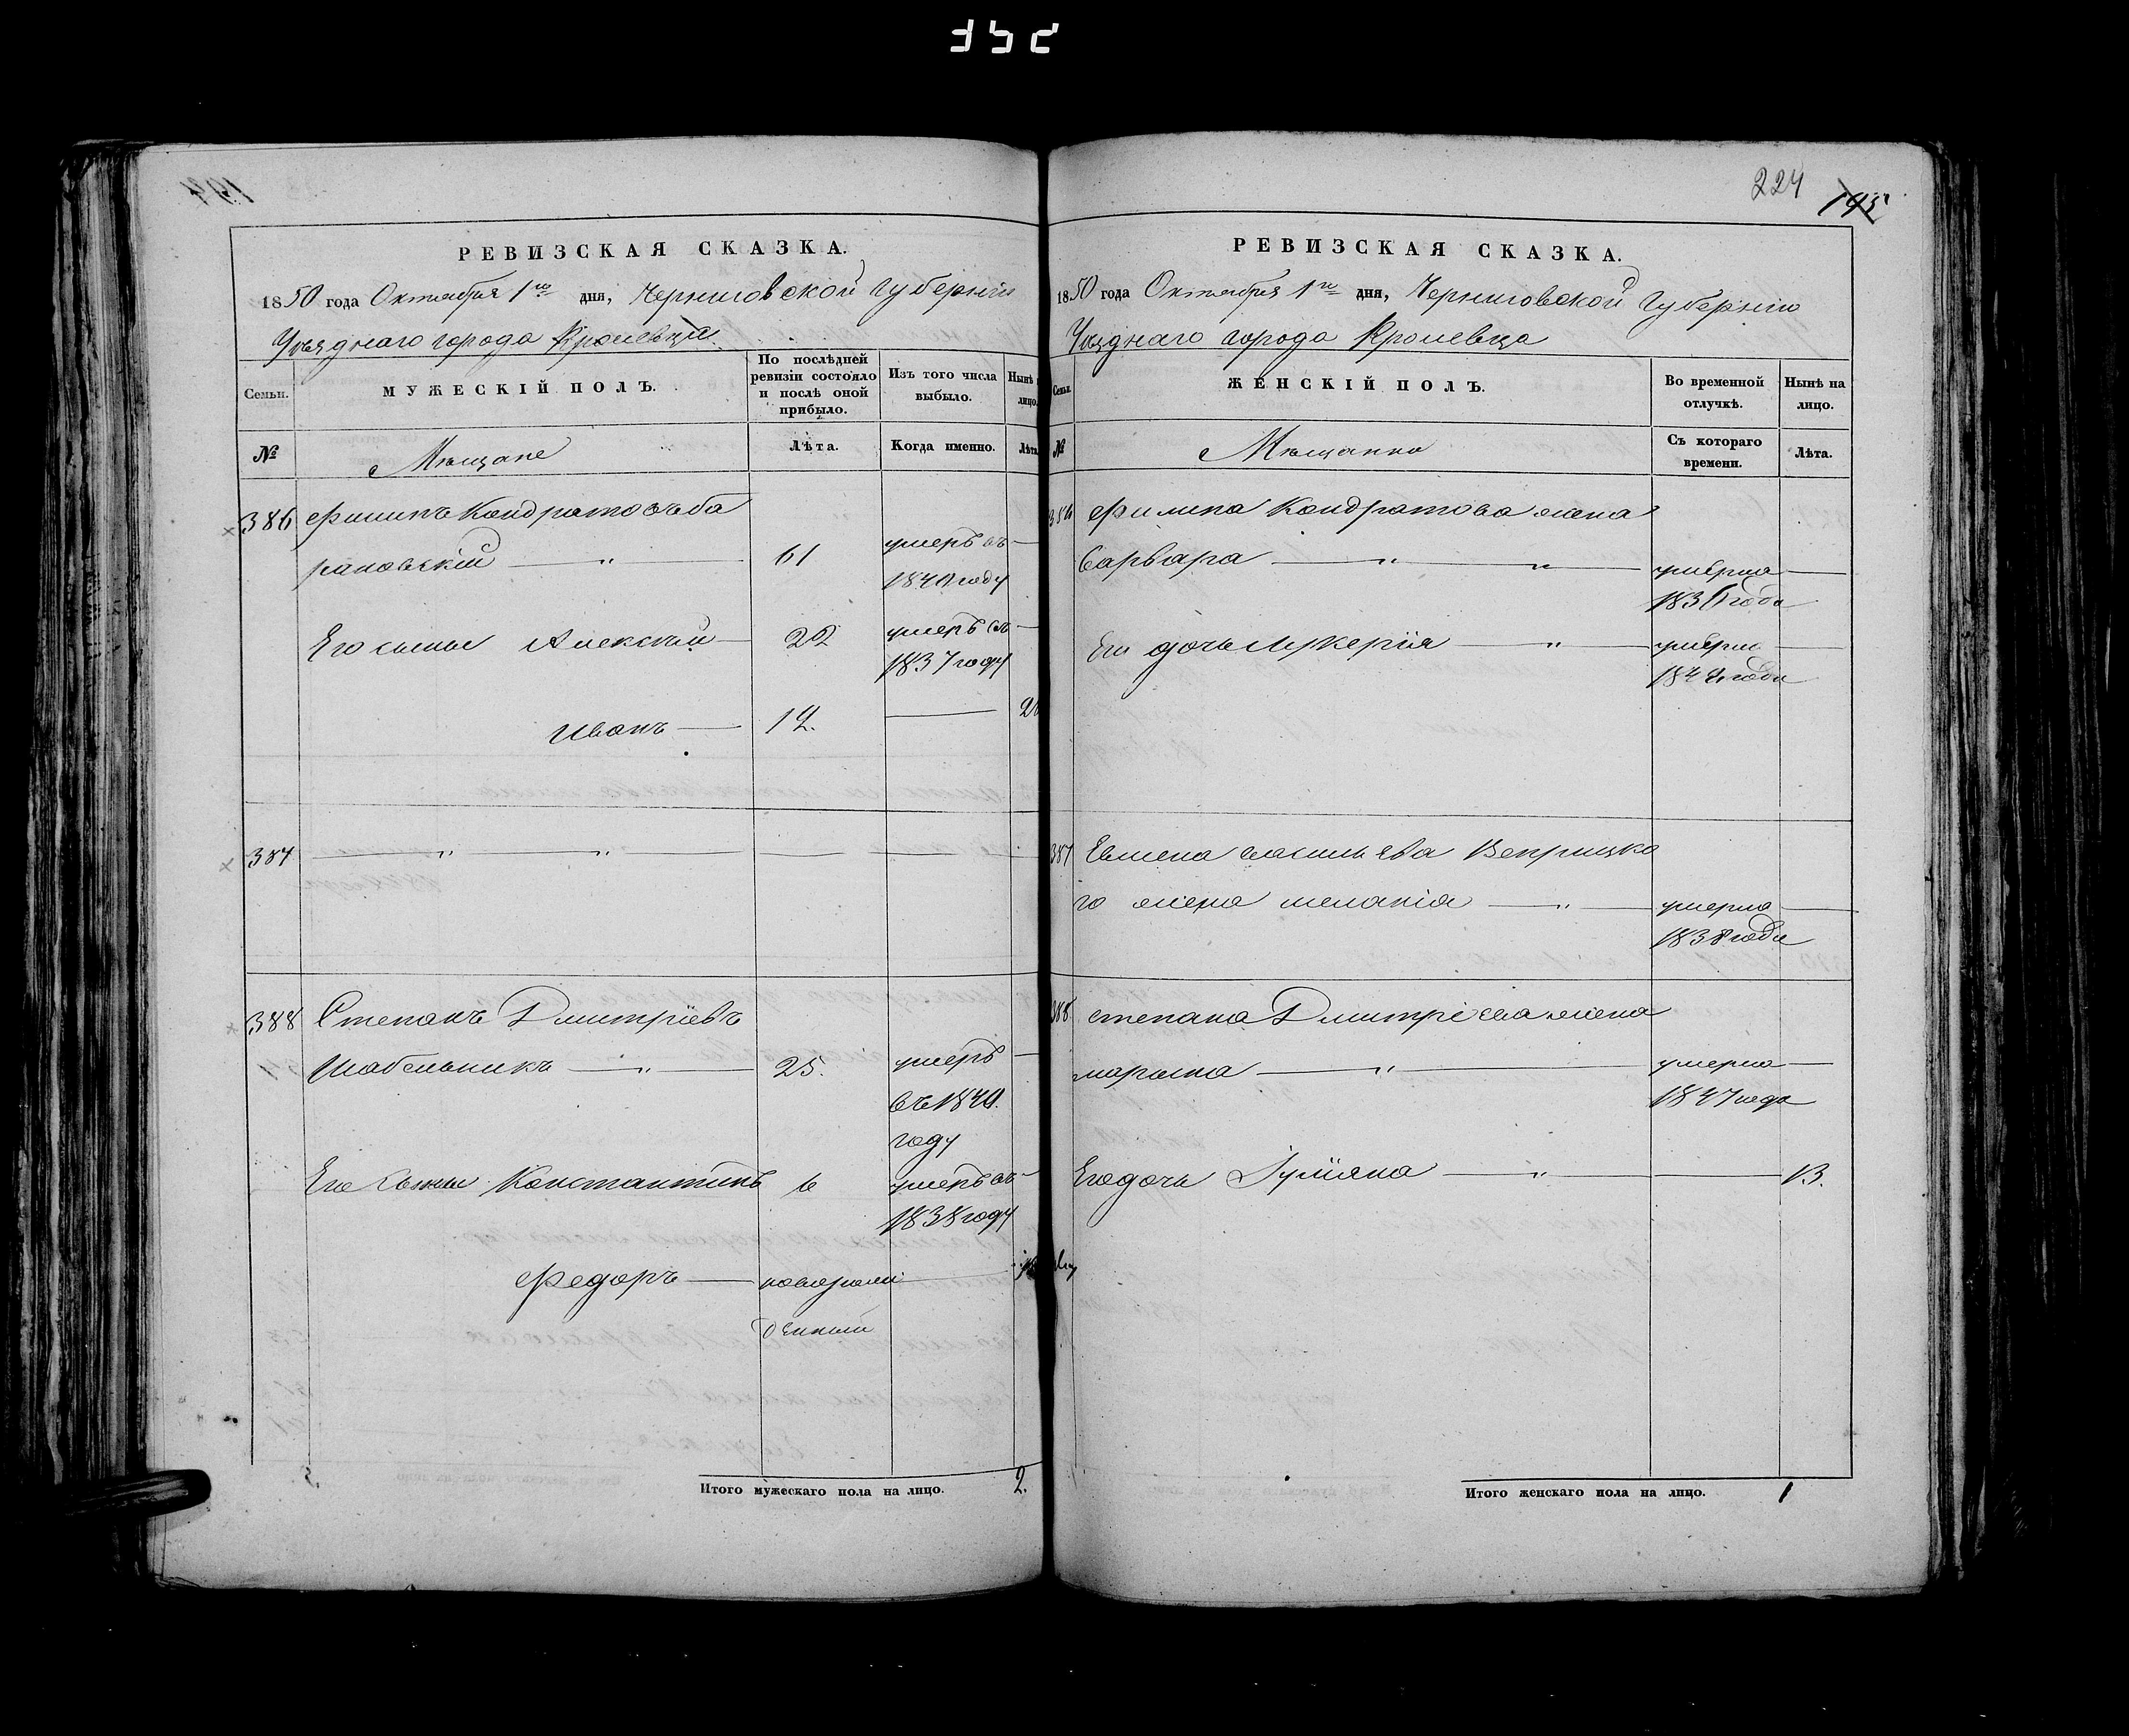 194
РЕВИЗСКАЯ СКАЗКА.
1850 года Октября 1го дня, Черниговской Губерніи
Уѣзднаго города Кролевца
Семьи. МУЖЕСКІЙ ПОЛЪ. По послѣдней ревизіи состояло и послѣ оной прибыло. Изъ того числа выбыло. Нынѣ лицо.
№ Мѣщане Лѣта. Когда именно. Лѣта
386 Филипъ Кондратовъ Ба
рановскій — " — 61 умеръ въ —
1840 году
Его сынье Алексѣй — 22 умеръ въ —
1837 году
Иванъ — 12. —
387 — " — " —
388 Степанъ Дмитріевъ
Шабельникъ — " — 25. умеръ —
въ 1840.
году
Его сынье Константинъ 6 умеръ въ —
1838 году
Федоръ — новорож
денный
Итого мужескаго пола на лицо. 2.
224
195
РЕВИЗСКАЯ СКАЗКА.
1850 года Октября 1го дня, Черниговской Губерніи
Уѣзднаго города Кролевца
Семьи. ЖЕНСКІЙ ПОЛЪ. Во временной отлучкѣ. Нынѣ на лицо.
№ Мѣщанки Съ котораго времени. Лѣта.
386 Филипа Кондратова жена
Варвара — " — " — умерла —
1836 года
Его дочь Лукерія — " — умерла —
года
387 Васильева Веприцка
го жена Меланія — " — умерла —
1838 года
388 Степана Дмитріева жена
— " — умерла —
1847 года
Его дочь Іуліяна — " — — 13.
Итого женскаго пола на лицо. 1